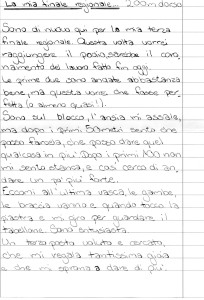 La mia finale regionale... 200m dorso
Sono di nuovo qui per la mia terza
finale regionale. Questa volta vorrei
raggiungere il podio, sarebbe il coro
namento del lavoro fatto fin ora.
Le prime due sono andate abbastanza
bene, ma questa vorrei che fosse per
fetta (o almeno quasi!).
Sono sul blocco, l'ansia mi assale,
ma dopo i primi 50 metri sento che
posso farcela, che posso dare quel
qualcosa in più. Dopo i primi 100 non
mi sento stanca, e così cerco di an
dare un po' più forte.
Eccomi all'ultima vasca, le gambe,
le braccia vanno e quando tocco la
piastra e mi giro per guardare il
tabellone sono entusiasta.
Un terzo posto voluto e cercato,
che mi regala tantissima gioia
e che mi sprona a dare di più.